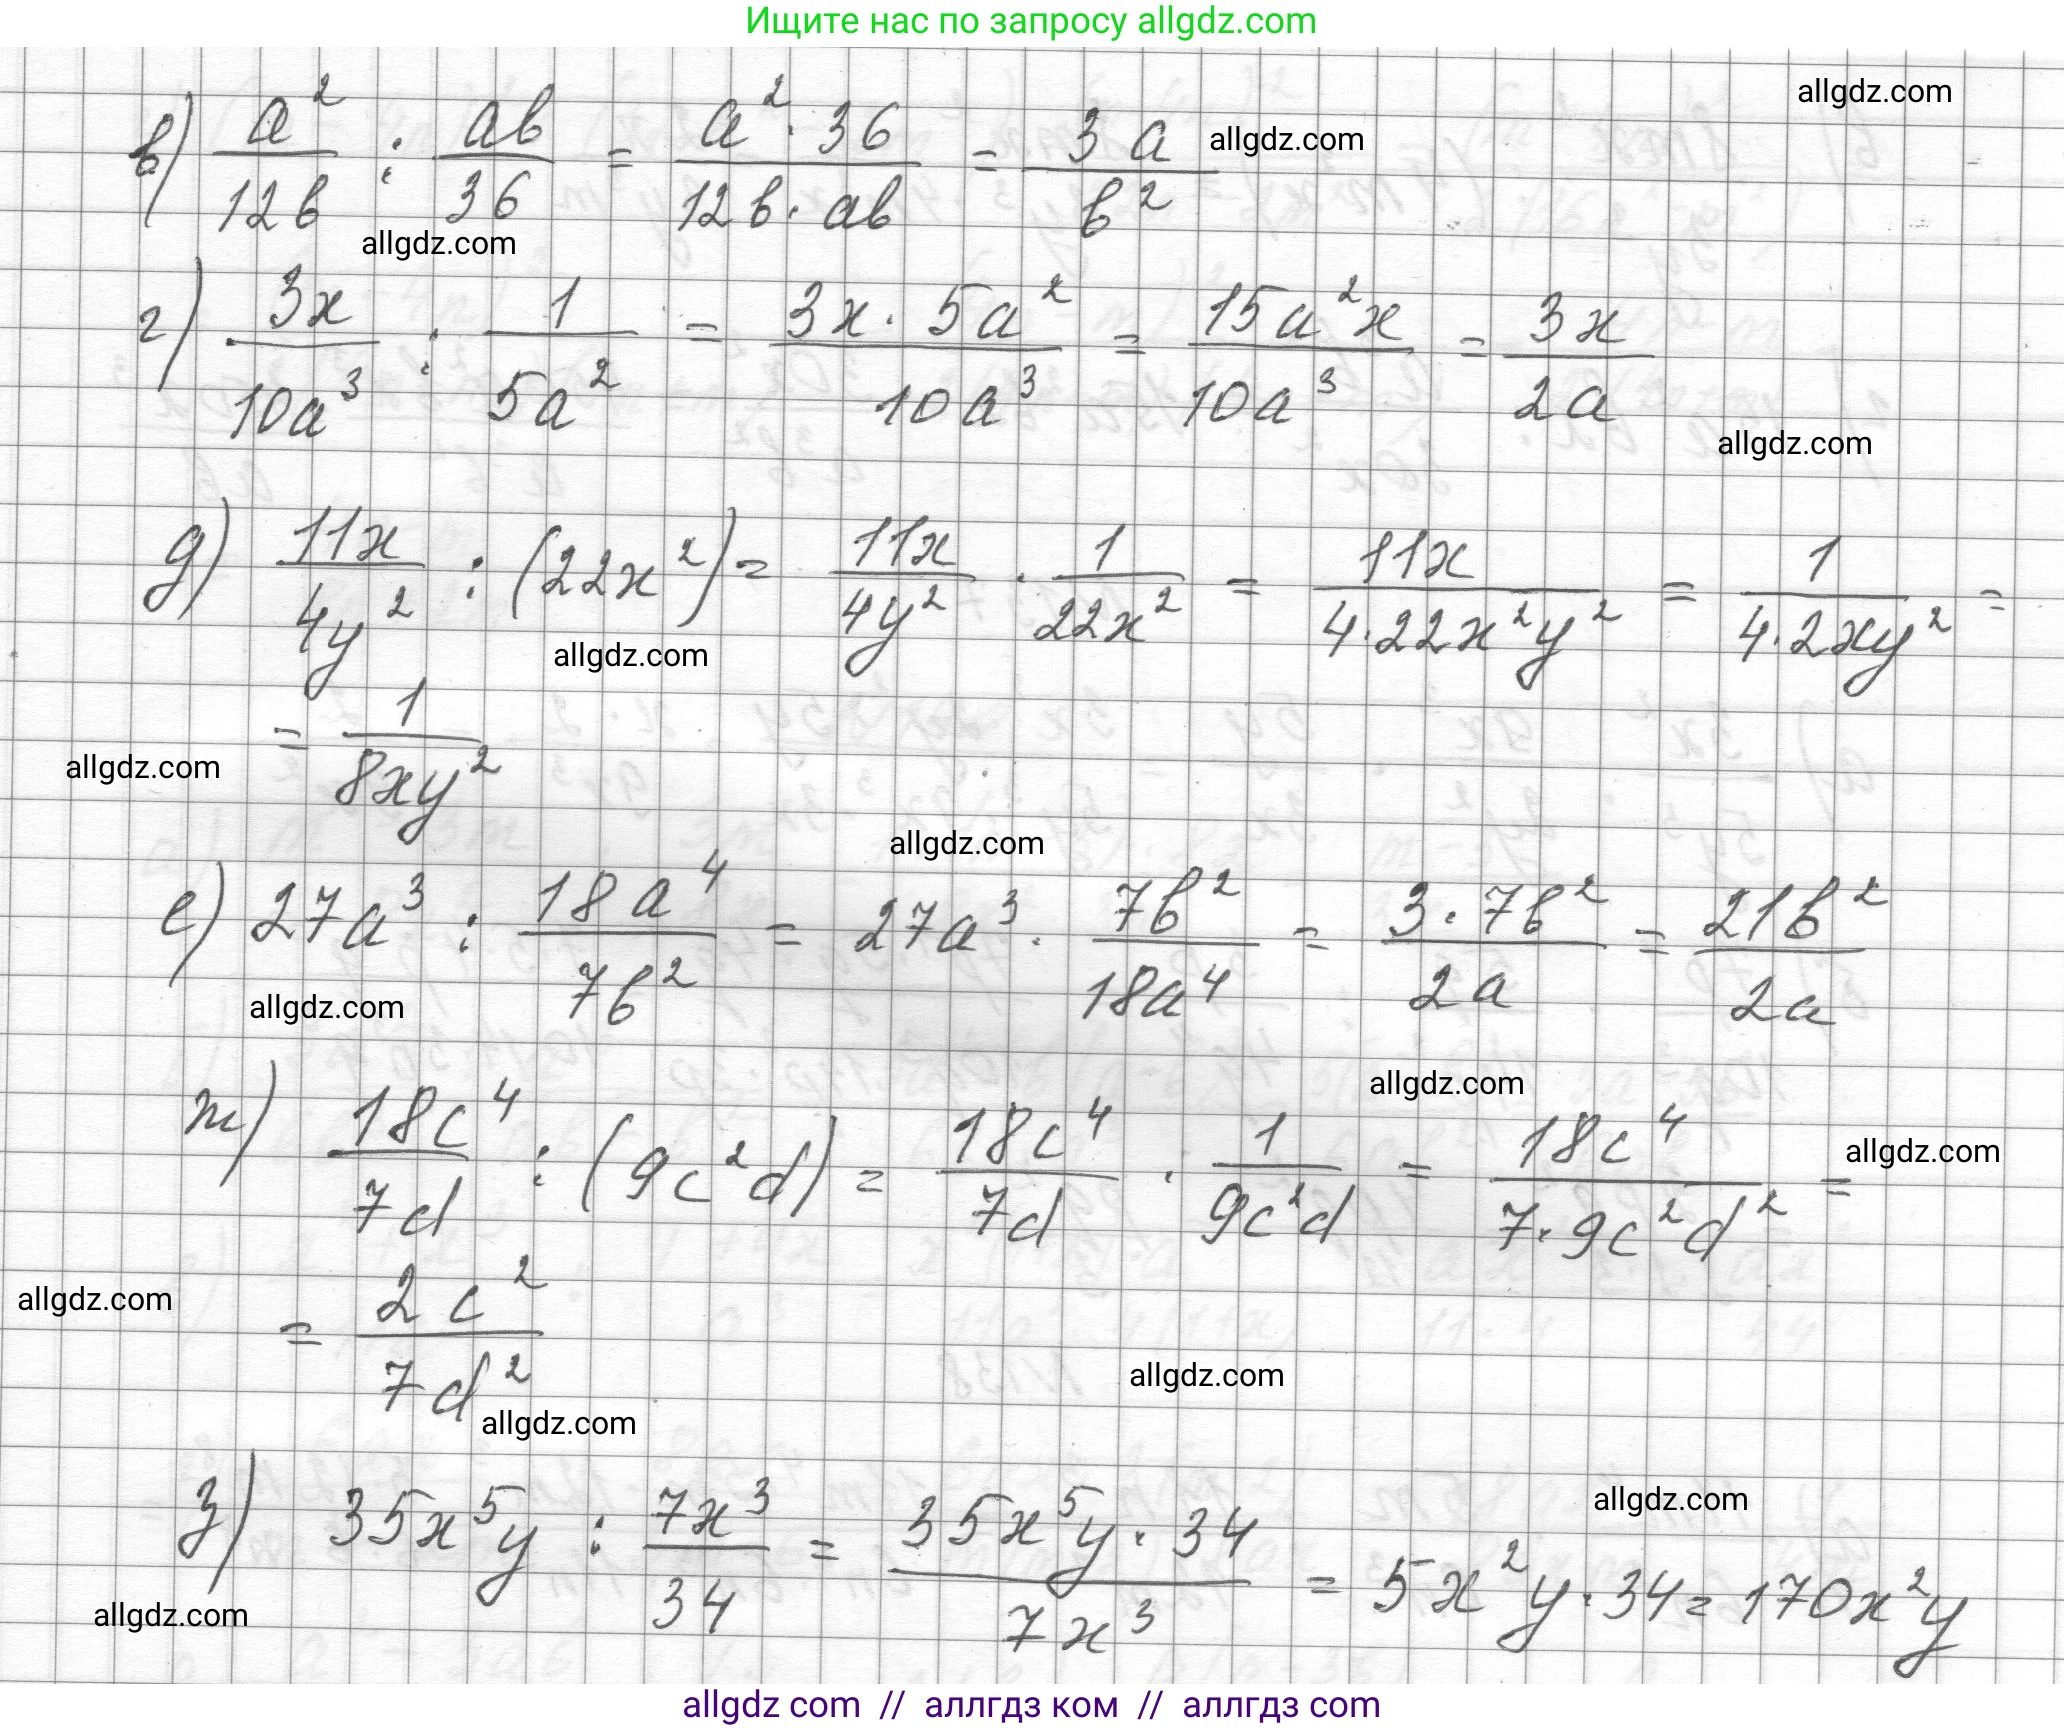 Ищите нас по запросу allgdz.com
allgdz.com
в) a²/12b : ab/36 = a² · 36/12b · ab = 3a/b²
allgdz.com
allgdz.com
г) 3x/10a³ : 1/5a² = 3x · 5a²/10a³ = 15a²x/10a³ = 3x/2a
allgdz.com
д) 11x/4y² : (22x²) = 11x/4y² · 1/22x² = 11x/4·22x²y² = 1/4·2xy² =
allgdz.com
= 1/8xy²
allgdz.com
allgdz.com
е) 27a³ : 18a⁴/7b² = 27a³ · 7b²/18a⁴ = 3·7b²/2a = 21b²/2a
allgdz.com
allgdz.com
ж) 18c⁴/7d : (9c²d) = 18c⁴/7d · 1/9c²d = 18c⁴/7·9c²d² =
allgdz.com
= 2c²/7d²
allgdz.com
allgdz.com
allgdz.com
allgdz.com
з) 35x⁵y : 7x³/34 = 35x⁵y · 34/7x³ = 5x²y · 34 = 170x²y
allgdz.com
allgdz com // аллгдз ком // аллгдз com